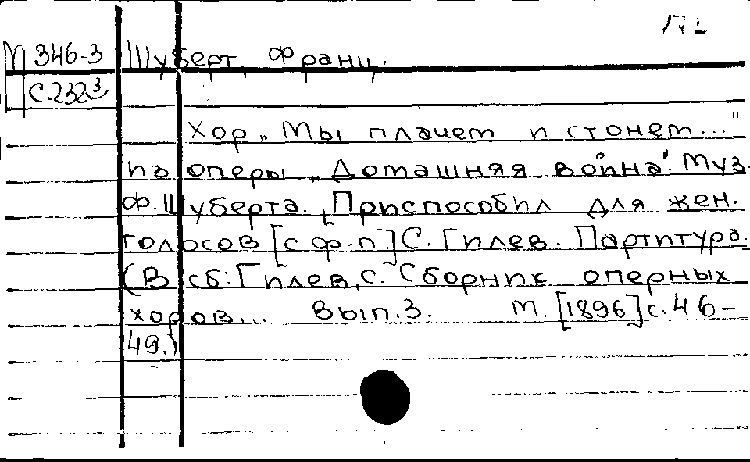 М 346-3 Шуберт, Франц.
С.232³
Хор „Мы плачем и стонем..."
из оперы „Домашняя война". Муз.
Ф. Шуберта. [Приспособил для жен.
голосов [с ф-п] С. Гилев. Партитура.
(В сб: Гилев, С. Сборник оперных
хоров... Вып. 3. М. [1896] с. 46-
49.)